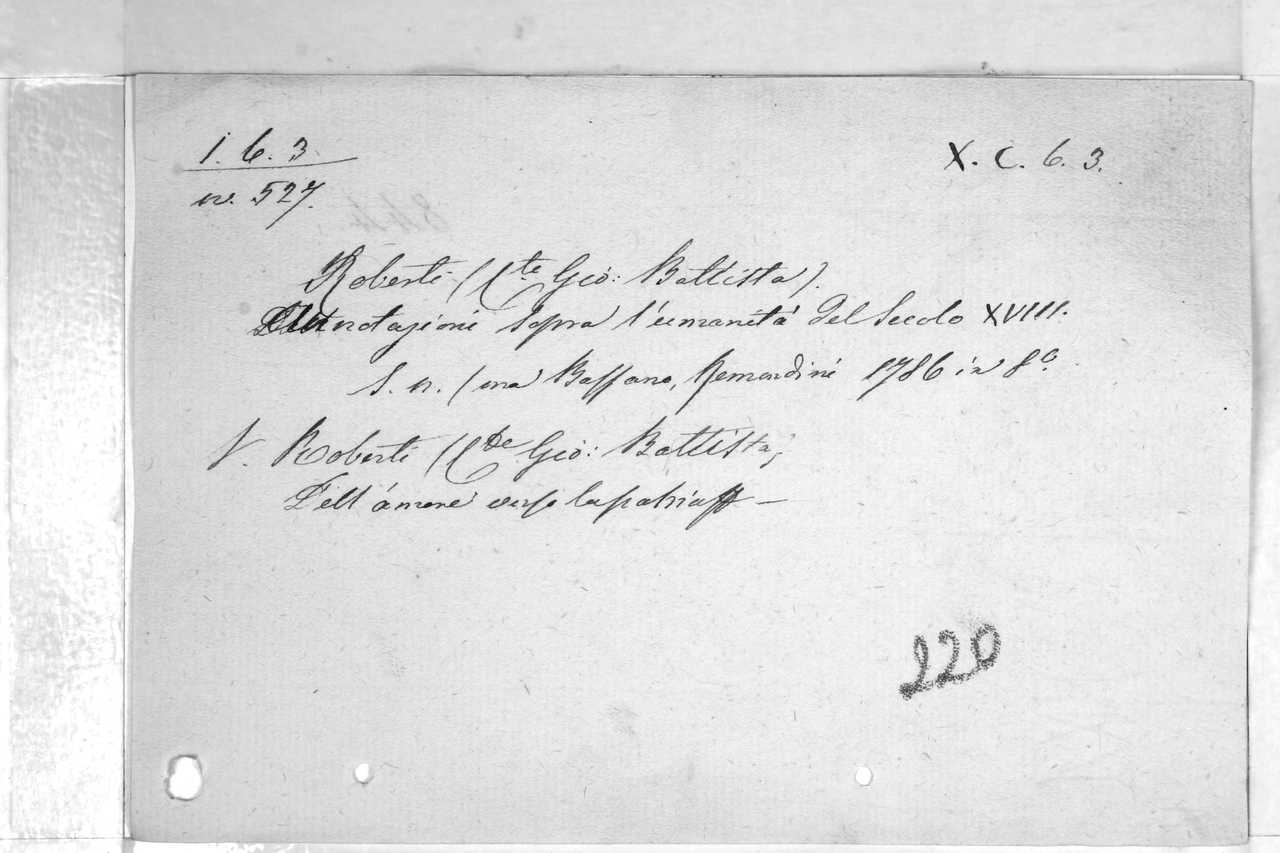 1. 6. 3. X. C. 6. 3.
n. 527.
Roberti (Cte Gio: Battista).
Annotazioni sopra l'umanità del Secolo XVIII.
S. n. (ma Bassano, Remondini 1786 in 8°.
V. Roberti (Cte Gio: Battista)
Dell'amore verso la patria —
220